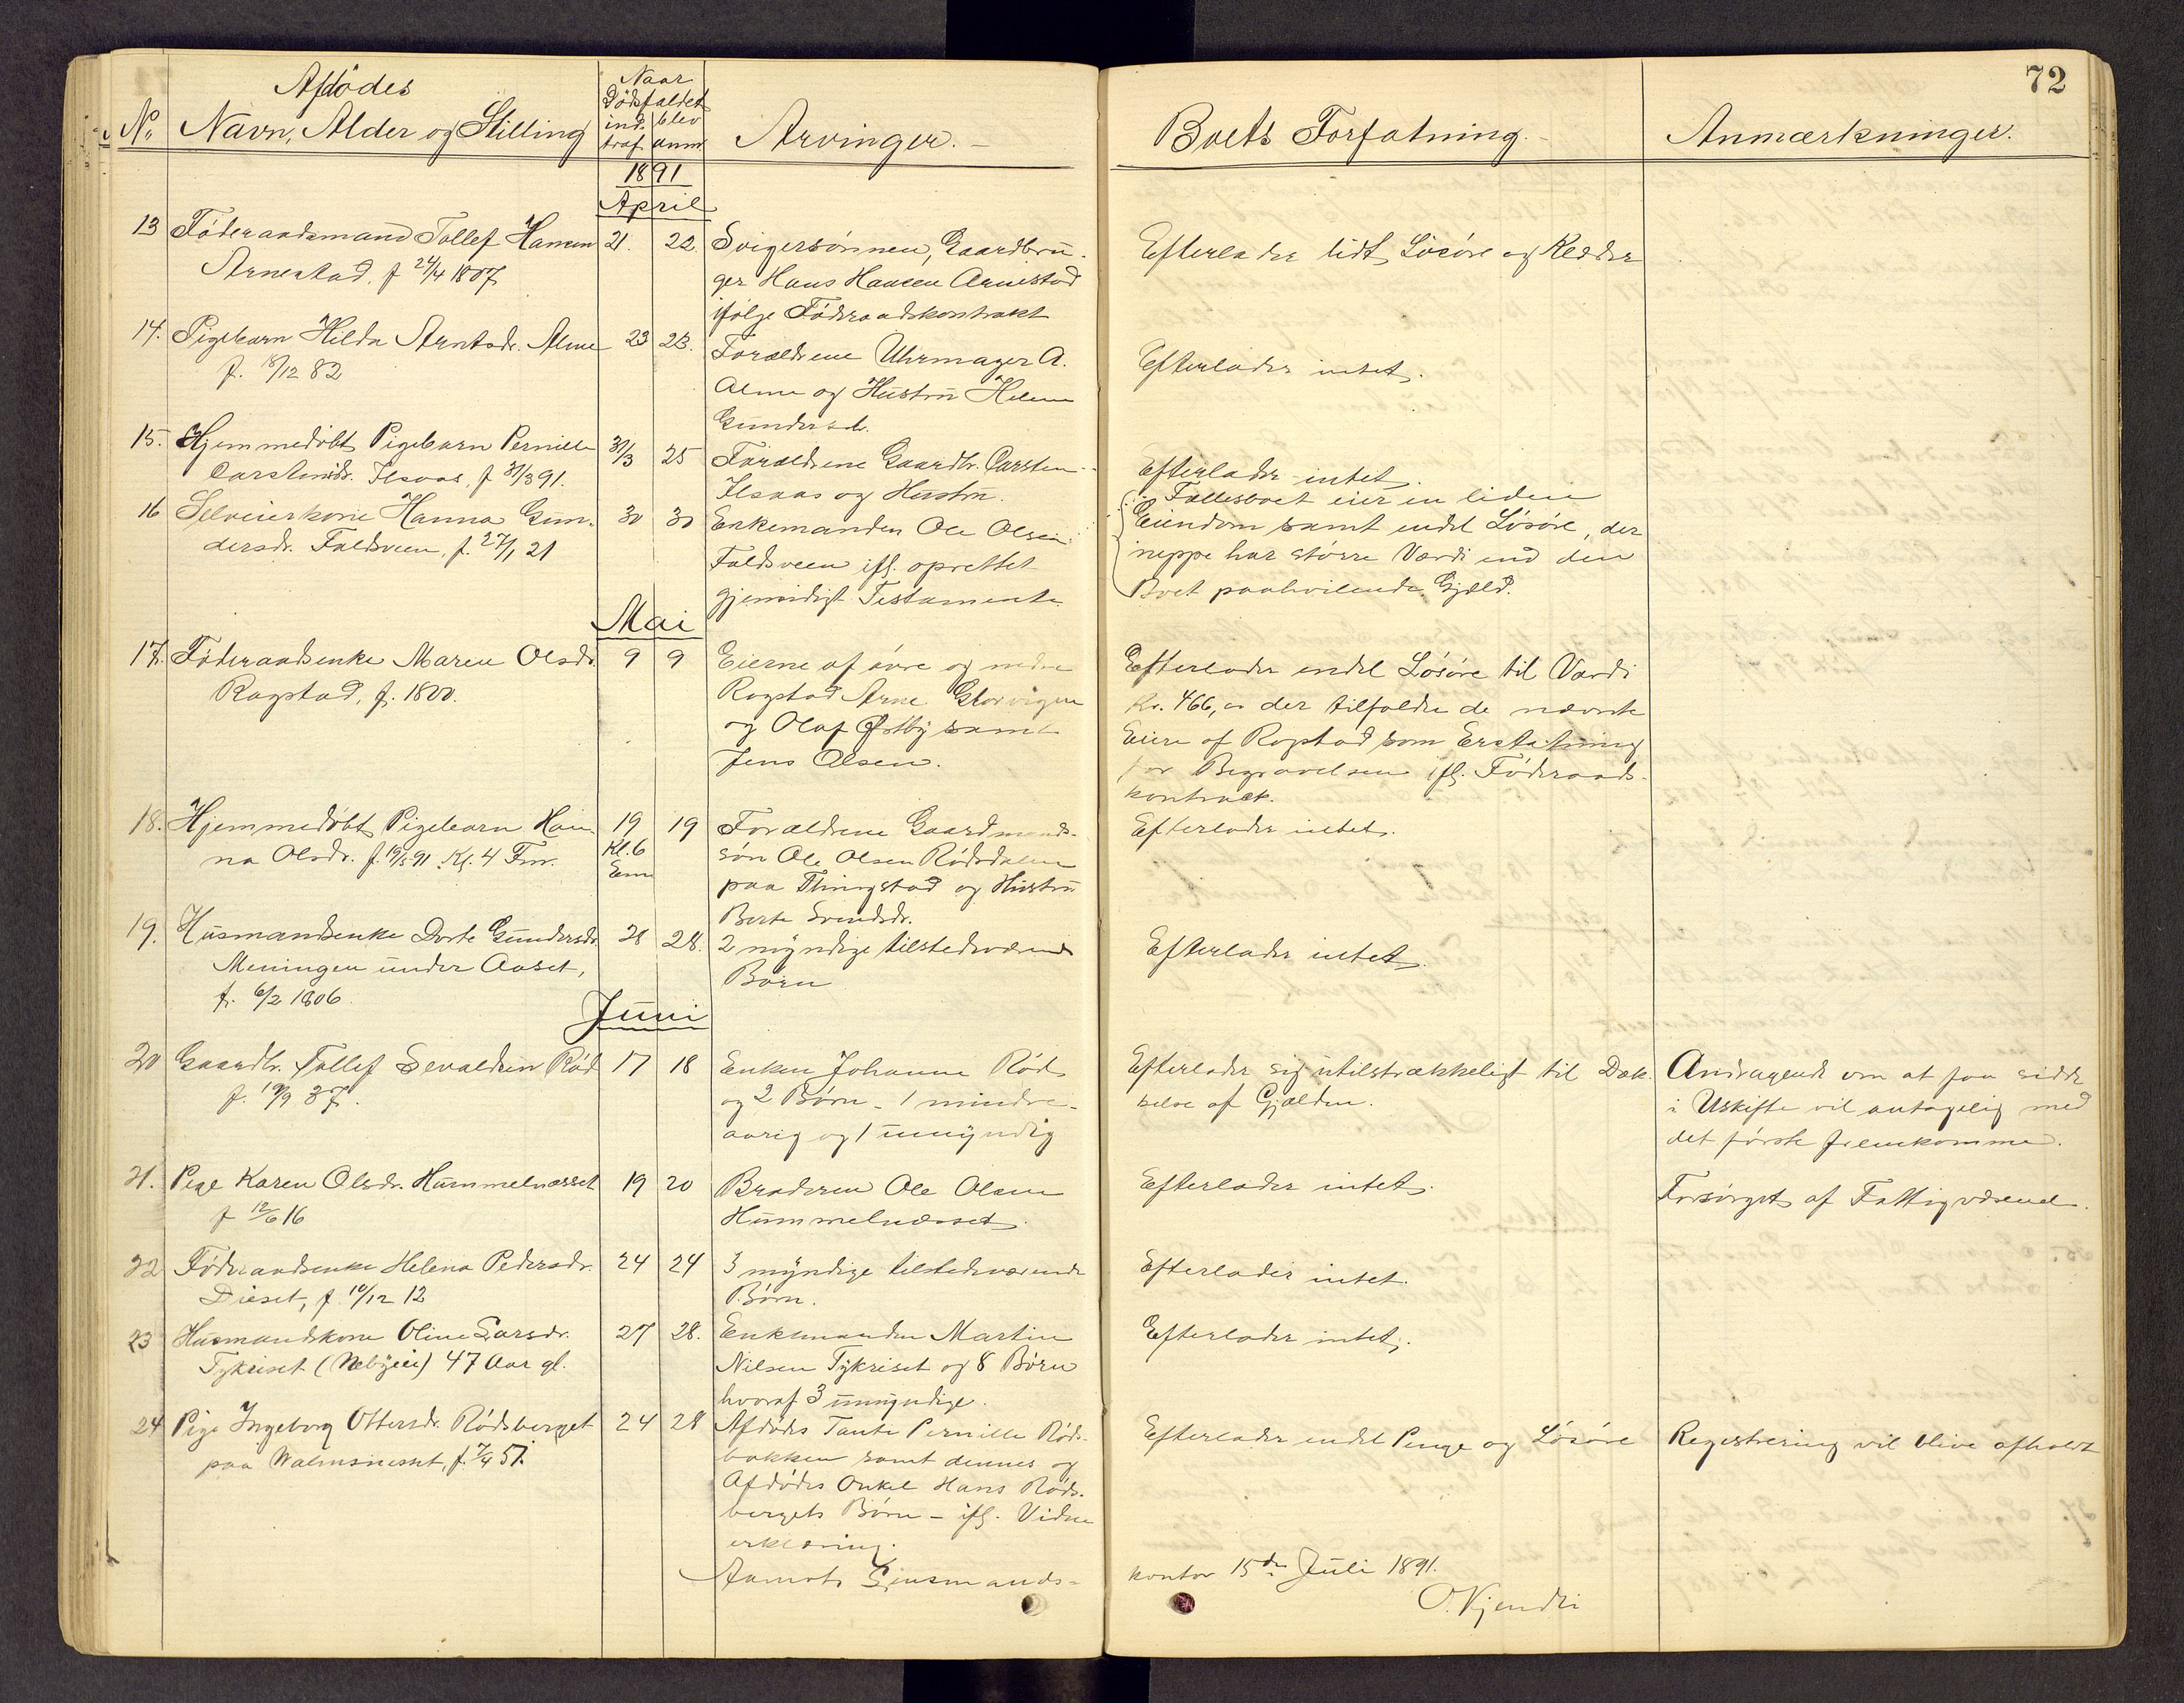 72
Afdödes
No Navn, Alder og Stilling
Naar
Dödsfaldet
ind- blev
traf anm
Arvinger.-
Boets Forfatning.-
Anmærkninger.
1891
April
13 Föderaadsmand Tollef Hansen 21. 22. Svigersönnen, Gaardbru-
Arnestad, f 24/4 1807
ger Hans Hansen Arnestad
ifölge Föderaadskontrakt
Efterlader lidt Lösöre og Klæder
14. Pigebarn Hilda Arntsdr. Alme 23 23. Forældrene Uhrmager A.
f. 18/12 82
Alme og Hustru Helene
Gundersd.
Efterlader intet.
15. Hjemmedöbt Pigebarn Pernille 31/3 25 Forældrene Gaardbr. Carsten
Carstensdr. Ilsaas, f 31/3 91.
Ilsaas og Hustru.
Efterlader intet.
16 Selveierkone Hanna Gun- 30 30 Enkemanden Ole Olsen
dersdr. Faldsveen, f. 27/1 21
Faldsveen ifl. oprettet
gjensidigt Testamente
Fællesboet eier en liden
Eiendom samt endel Lösöre, der
neppe har större Værdi end den
Boet paahvilende Gjæld.
Mai
17. Föderaadsenke Maren Olsdr. 9 9 Eierne af övre og nedre
Rogstad, f. 1800.
Rogstad Arne Storvigen
og Olaf Østby samt
Jens Olsen.
Efterlader endel Lösöre til Værdi
Kr. 466, der tilfalder de nævnte
Eiere af Rogstad som Erstatning
for Begravelsen ifl. Föderaads-
kontrakt.
18. Hjemmedöbt Pigebarn Han- 19 19 Forældrene Gaardmands-
na Olsdr. f. 19/5 91 Kl. 4 Fm.
Kl. 6
Em
sön Ole Olsen Rödsdalen
paa Thingstad og Hustru
Berte Svendsdr.
Efterlader intet.
19. Husmandsenke Dorte Gundersdr. 28 28. 2 myndige tilstedeværende
Meningen under Aaset,
Börn
f. 6/2 1806.
Efterlader intet.
Juni
20 Gaardbr. Tollef Sevaldsen Röd 17 18 Enken Johanne Röd
f. 19/9 37.
og 2 Börn - 1 mindre-
aarig og 1 umyndig
Efterlader sig utilstrækkeligt til Dæk-
kelse af Gjælden.
Andragende om at faa sidde
i Uskifte vil antagelig med
det förste fremkomme.
21. Pige Karen Olsdr. Hummelnæsset 19 20 Broderen Ole Olsen
f 12/6 16
Hummelnæsset.
Efterlader intet.
Forsörget af Fattigvæsenet.
22 Föderaadsenke Helena Pedersdr. 24 24 3 myndige tilstedeværende
Dieset, f. 10/12 12
Börn.
Efterlader intet.
23 Husmandskone Oline Larsdr. 27 28. Enkemanden Martin
Tykriset (Nebyeie) 47 Aar gl.
Nilsen Tykriset og 8 Börn
hvoraf 3 umyndige.
Efterlader intet.
24 Pige Ingeborg Ottersdr. Rödsberget 24 28 Afdödes Tante Pernille Röds-
paa Malmsnesset, f. 7/4 51.
bakken samt dennes og
Afdödes Onkel Hans Röds-
bergets Börn - ifl. Vidne
erklæring.
Efterlader endel Penge og Lösöre
Registrering vil blive afholdt
Aamots Lensmands-
kontor 15de Juli 1891.
O. Kjendli